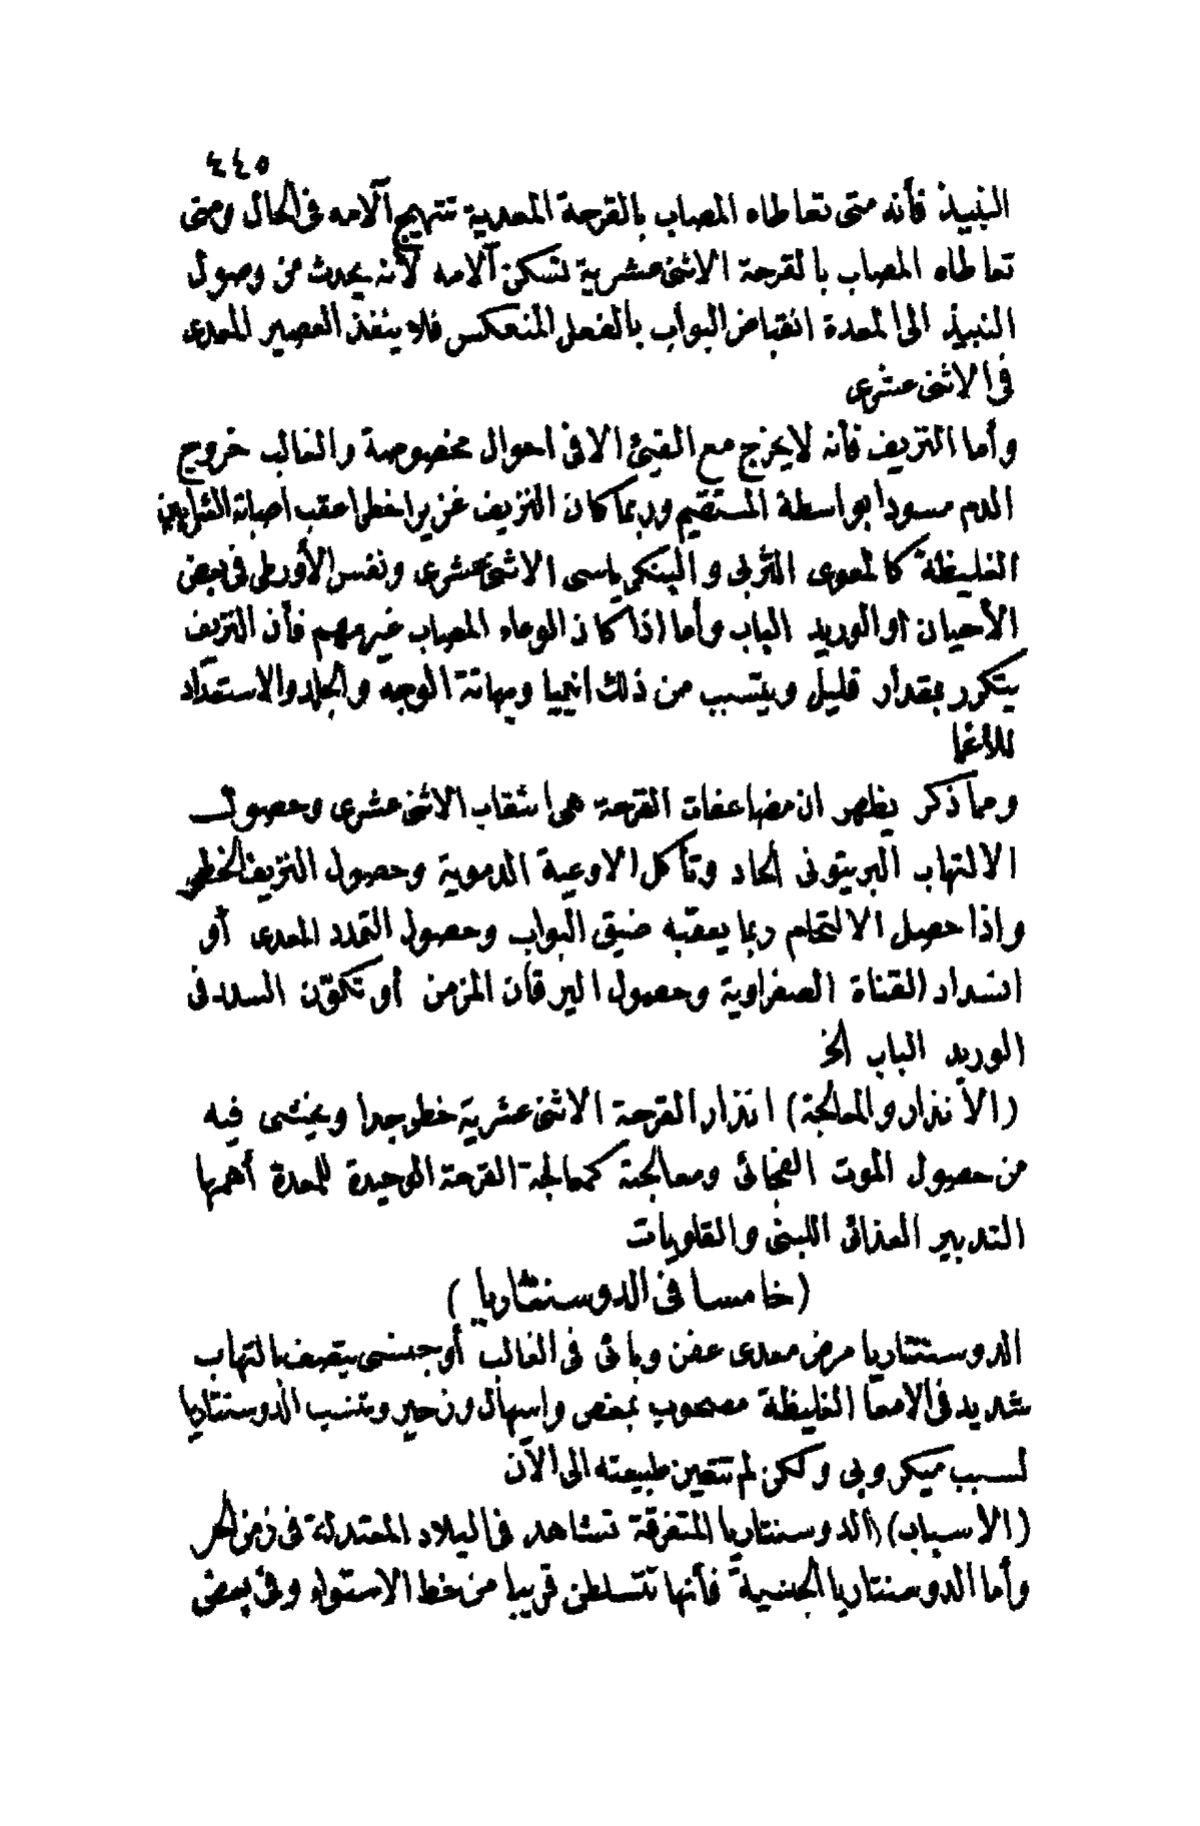 ٤٤٥
النبيذ فأنه متى تعاطاه المصاب بالقرحة المعدية تتهيج آلامه فى الحال ومتى
تعاطاه المصاب بالقرحة الاثنى عشرية تسكن آلامه لأنه يحدث من وصول
النبيذ الى المعدة انقباض البواب بالفعل المنعكس فلا ينفذ العصير المعدى
فى الاثنى عشرى
وأما النزيف فأنه لا يخرج مع القيئ الا فى احوال مخصوصة والغالب خروج
الدم مسودا بواسطة المستقيم وربما كان النزيف غزيرا خطرا عقب اصابة الشرايين
الغليظة كالمعوى الثربى والبنكرياسى الاثنى عشرى ونفس الأورطى فى بعض
الأحيان أو الوريد الباب وأما اذا كان الوعاء المصاب غير مهم فأن النزيف
يتكرر بمقدار قليل ويتسبب من ذلك انيميا وبهاتة الوجه والجلد والاستعداد
للاغما
ومما ذكر يظهر ان مضاعفات القرحة هى انثقاب الاثنى عشرى وحصول
الالتهاب البريتونى الحاد وتأكل الاوعية الدموية وحصول النزيف الخطر
واذا حصل الالتحام ربما يعقبه ضيق البواب وحصول التمدد المعدى أو
انسداد القناة الصفراوية وحصول اليرقان المزمن أو تكوّن السدد فى
الوريد الباب الخ
(الأنذار والمعالجة) انذار القرحة الاثنى عشرية خطر جدا ويخشى فيه
من حصول الموت الفجائى ومعالجته كمعالجة القرحة الوحيدة للمعدة أهمها
التدبير الغذائى اللبنى والقلويات
(خامسا فى الدوسنتاريا)
الدوسنتاريا مرض معدى عفن وبائى فى الغالب أو جنسى يتصف بالتهاب
شديد فى الامعا الغليظة مصحوب بمغص واسهال وزحير وتنسب الدوسنتاريا
لسبب ميكروبى ولكن لم تتعين طبيعته الى الآن
(الأسباب) (الدوسنتاريا المتفرقة تشاهد فى البلاد المعتدلة فى زمن الحر
وأما الدوسنتاريا الجنسية فأنها تتسلطن قريبا من خط الاستواء وفى بعض